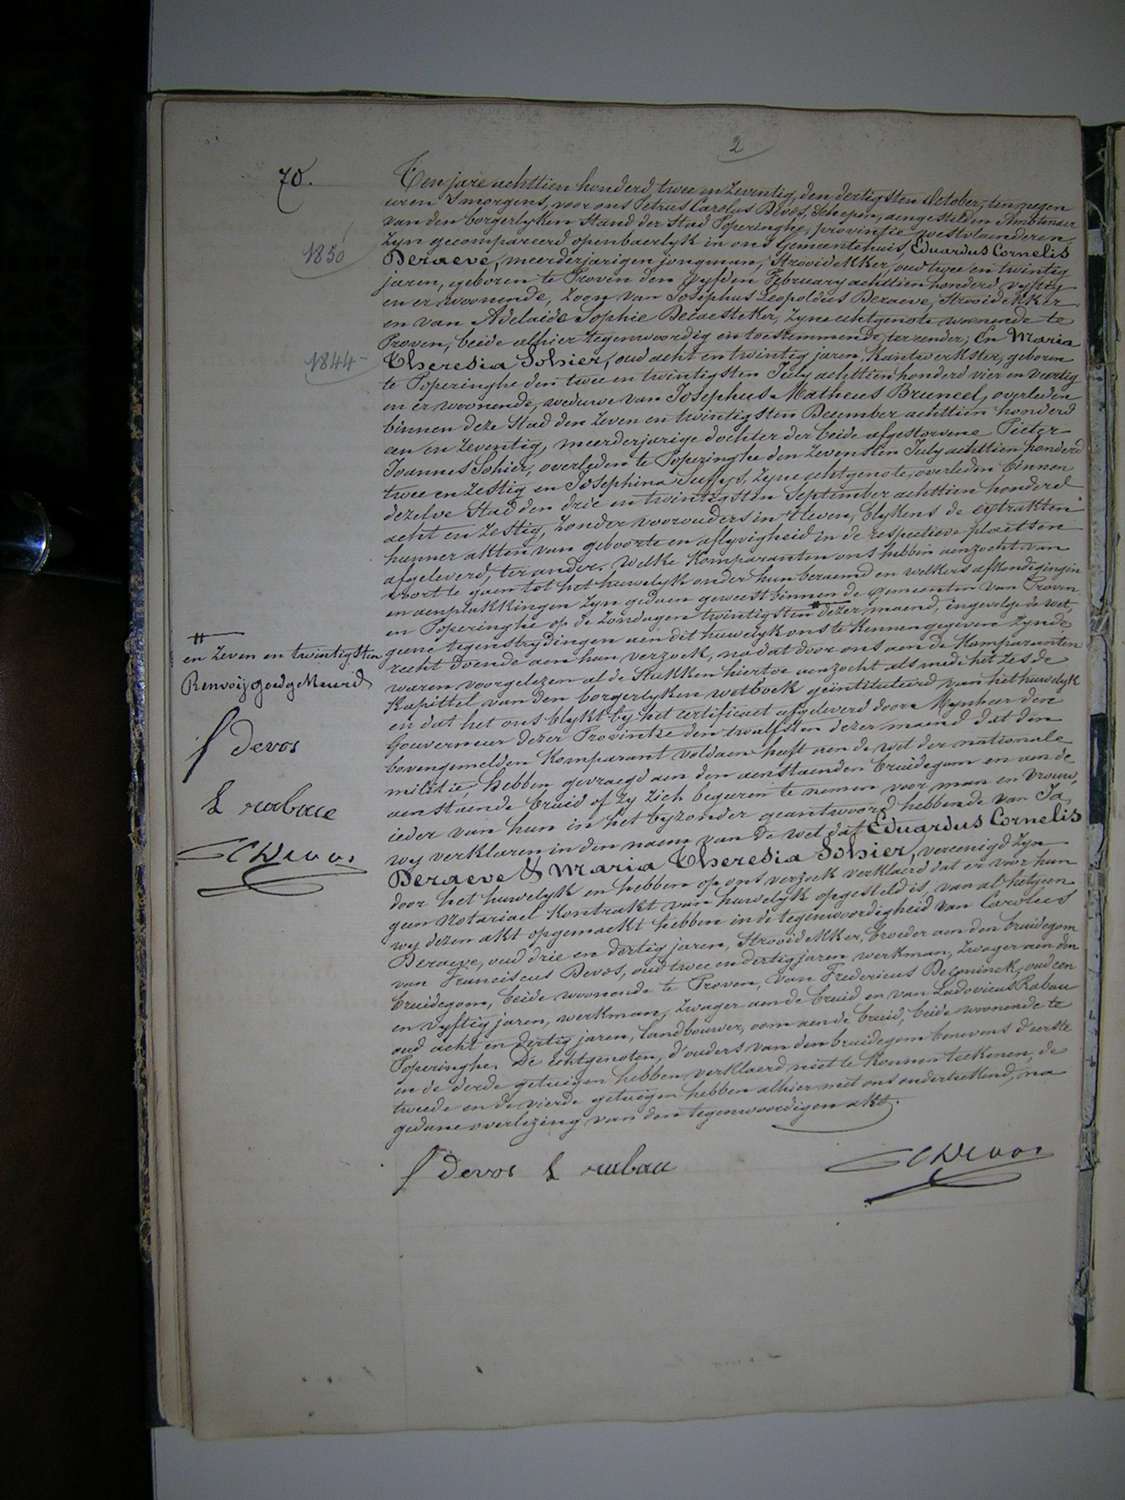 2
70.
Ten jare achttien honderd twee en zeventig, den dertigsten October, ten negen
uren 's morgens, voor ons Petrus Carolus Devos, Schepen, aengestelden Ambtenaer
van den borgerlyken Stand der Stad Poperinghe, provintie westvlaenderen
zyn gecompareerd openbaerlyk in ons Gemeentehuis, Eduardus Cornelis
1850
Deraeve, meerderjarigen jongman, Stroodekker, oud twee en twintig
jaren, geboren te Proven den vyfden February achttien honderd vyftig
en er woonende, zoon van Josephus Leopoldus Deraeve, Stroodekker
en van Adelaide Sophie Decaesteker, zyne echtgenote woonende te
Proven, beide alhier tegenwoordig en toestemmende, ter eender; En Maria
1844
Theresia Sohier, oud acht en twintig jaren, Kantwerkster, geboren
te Poperinghe den twee en twintigsten July achttien honderd vier en veertig
en er woonende, weduwe van Josephus Matheus Bruneel, overleden
binnen deze Stad den zeven en twintigsten December achttien honderd
een en zeventig, meerderjarige dochter der beide afgestorvene Pieter
Joannes Sohier, overleden te Poperinghe den zevensten July achttien honderd
twee en zestig en Josephina zyne echtgenote, overleden binnen
dezelve Stad den drie en twintigsten September achttien honderd
acht en zestig, zonder voorouders in 't leven, blykens de extrakten
hunner akten van geboorte en aflyvigheid in de respective plaetsen
afgeleverd, ter andere. Welke Komparanten ons hebben aenzocht van
voort te gaen tot het huwelyk onder hun beraemd en welkers afkondigingen
en aenplakkingen zyn gedaen geweest binnen de gemeenten van Proven
en Poperinghe op de zondagen twintigsten # dezer maend, ingevolge de wet,
#
en zeven en twintigsten
Renvoij goedgekeurd
f devos
L rabau
PC Devos
geene tegenstrydingen aen dit huwelyk ons te kennen gegeven zynde
recht doende aen hun verzoek, na dat door ons aen de Komparanten
waren voorgelezen al de Stukken hiertoe aenzocht als mede het zesde
Kapittel van den borgerlyken wetboek geintituleerd van het huwelyk
en dat het ons blykt by het certificaet afgeleverd door Mynheer den
Gouverneur dezer Provintie den twaelfsten dezer maend dat den
bovengemelden Komparant voldaen heeft aen de wet der nationale
militie, hebben gevraegd aen den aenstaenden bruidegom en aen de
aenstaende bruid of zy zich begeren te nemen voor man en vrouw,
ieder van hun in het byzonder geantwoord hebbende van Ja,
wy verklaren in den naem van de wet dat Eduardus Cornelis
Deraeve & Maria Theresia Sohier, vereenigd zyn
door het huwelyk en hebben op ons verzoek verklaerd dat er voor hun
geen Notariael Kontrakt van huwelyk opgesteld is, van al hetgeen
wy dezen akt opgemaekt hebben in de tegenwoordigheid van Carolus
Deraeve, oud drie en dertig jaren, Stroodekker, broeder aen den bruidegom
van Franciscus Devos, oud twee en dertig jaren werkman, zwager aen den
bruidegom, beide woonende te Proven, van Fredericus Deconinck, oud een
en vyftig jaren, werkman, zwager aen de bruid en van Ludovicus Rabau
oud acht en dertig jaren, landbouwer, oom aen de bruid, beide woonende te
Poperinghe. De echtgenoten, d'ouders van den bruidegom benevens d'eerste
en de derde getuigen hebben verklaerd niet te konnen teekenen, de
tweede en de vierde getuigen hebben alhier met ons onderteekend, na
gedane overlezing van den tegenwoordigen akt.
f devos L rabau PC Devos